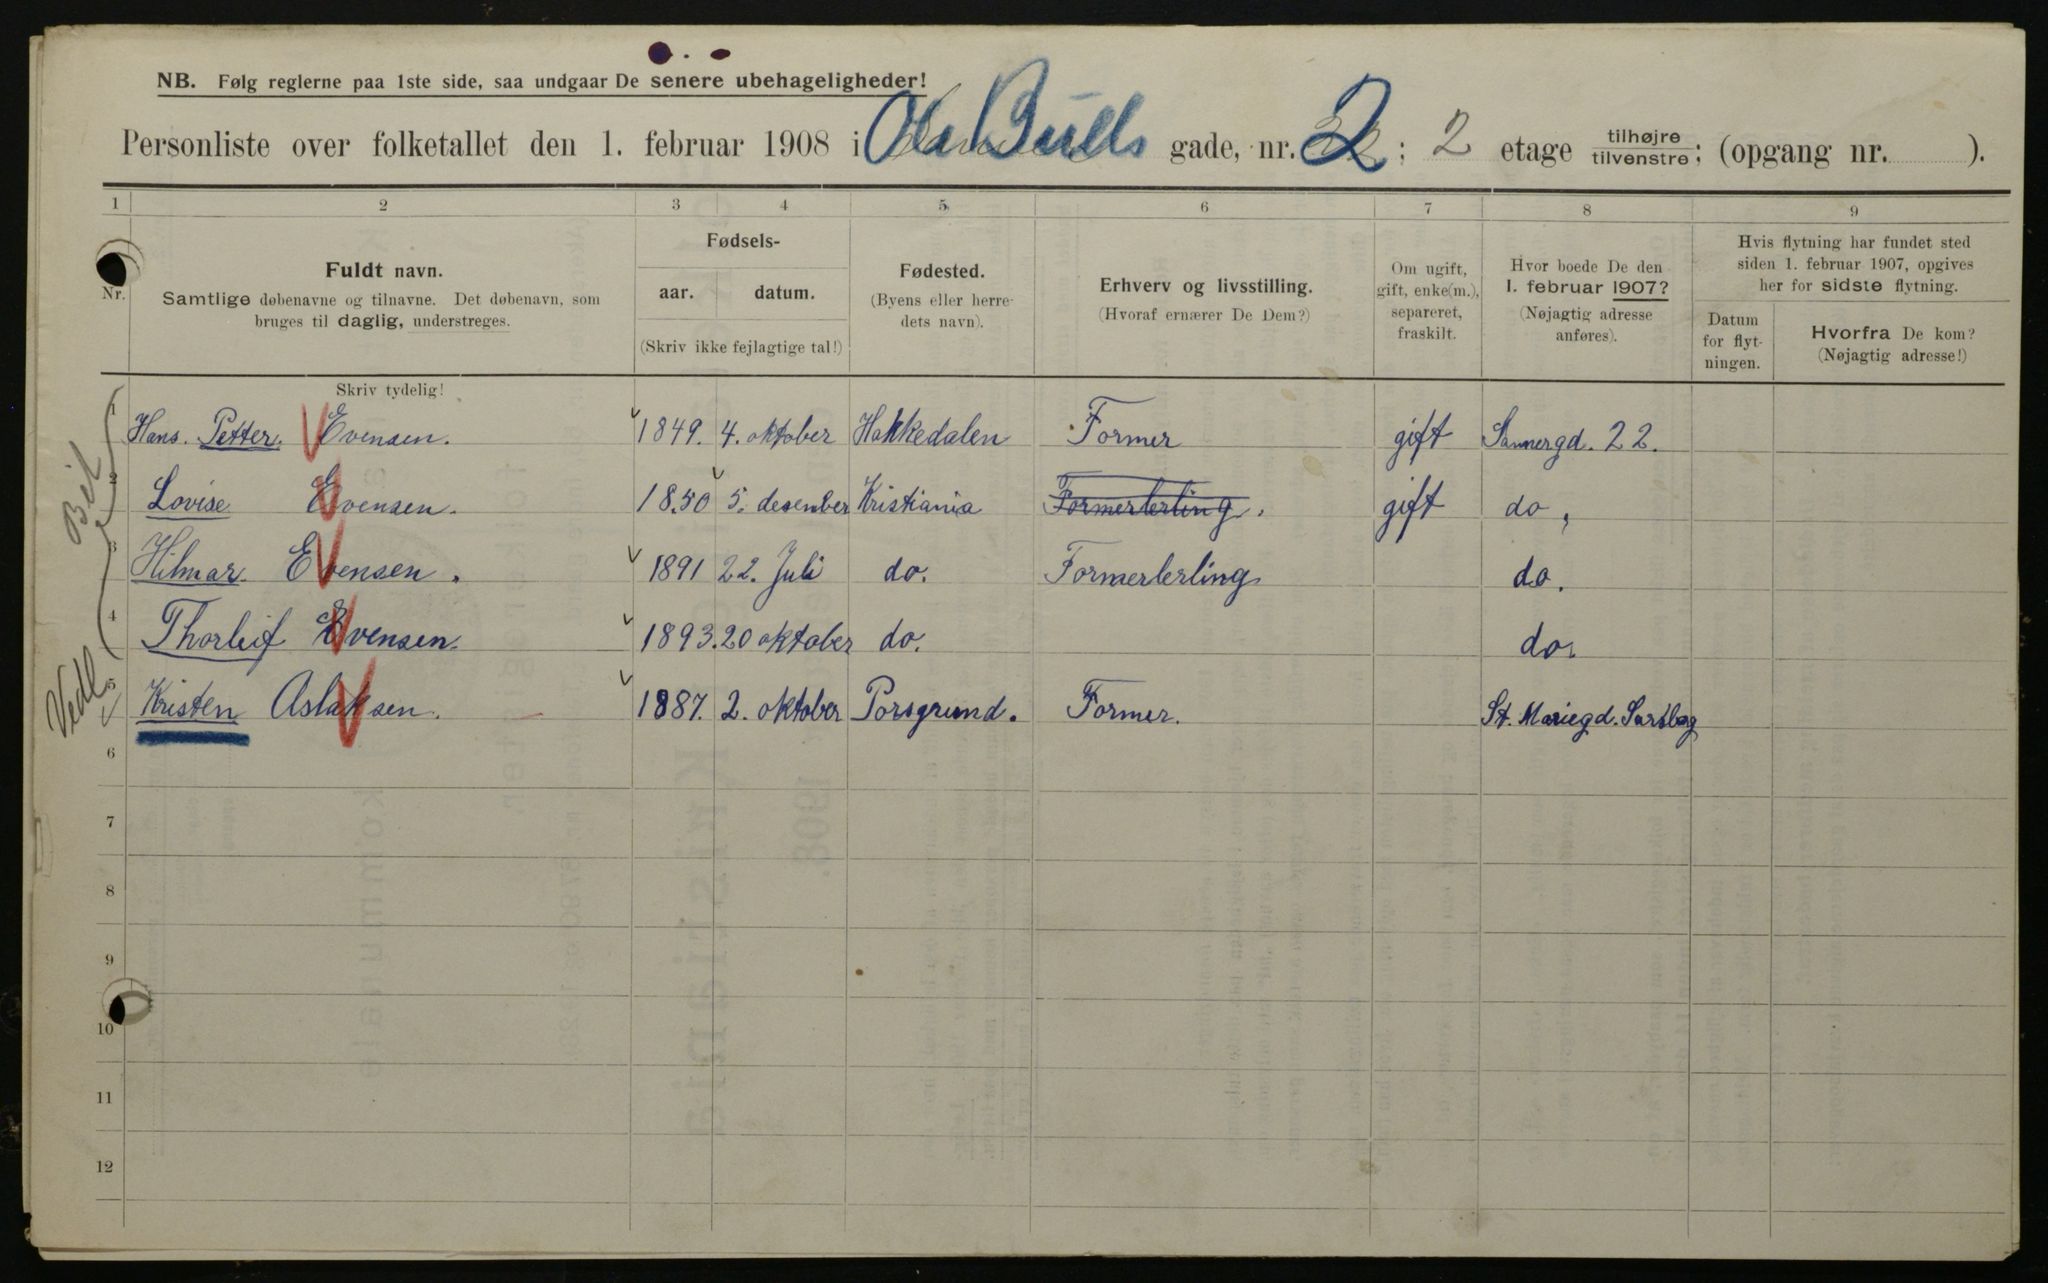 NB. Følg reglerne paa 1ste side, saa undgaar De senere ubehageligheder!
Personliste over folketallet den 1. februar 1908 i Ole Bulls gade, nr. 2; 2 etage tilhøjre tilvenstre; (opgang nr. ).
1 2 3 4 5 6 7 8 9
Nr.
Fuldt navn.
Samtlige døbenavne og tilnavne. Det døbenavn, som
bruges til daglig, understreges.
Fødsels-
aar. datum.
(Skriv ikke fejlagtige tal!)
Fødested.
(Byens eller herre-
dets navn).
Erhverv og livsstilling.
(Hvoraf ernærer De Dem?)
Om ugift,
gift, enke(m.),
separeret,
fraskilt.
Hvor boede De den
1. februar 1907?
(Nøjagtig adresse
anføres).
Hvis flytning har fundet sted
siden 1. februar 1907, opgives
her for sidste flytning.
Datum
for flyt-
ningen.
Hvorfra De kom?
(Nøjagtig adresse!)
Skriv tydelig!
1 Hans. Petter. Evensen. 1849. 4. oktober Hakkedalen Former gift Sannergd. 22.
2 Lovise Evensen. 18.50 5. desember Kristiania Formerlerling. gift do,
3 Hilmar. Evensen. 1891 22. Juli do. Formerlerling do.
4 Thorleif Evensen. 1893. 20 oktober do. do.
5 Kristen Aslaksen. 1887. 2. oktober Porsgrund. Former. St. Mariegd. Sarsborg
6
7
8
9
10
11
12